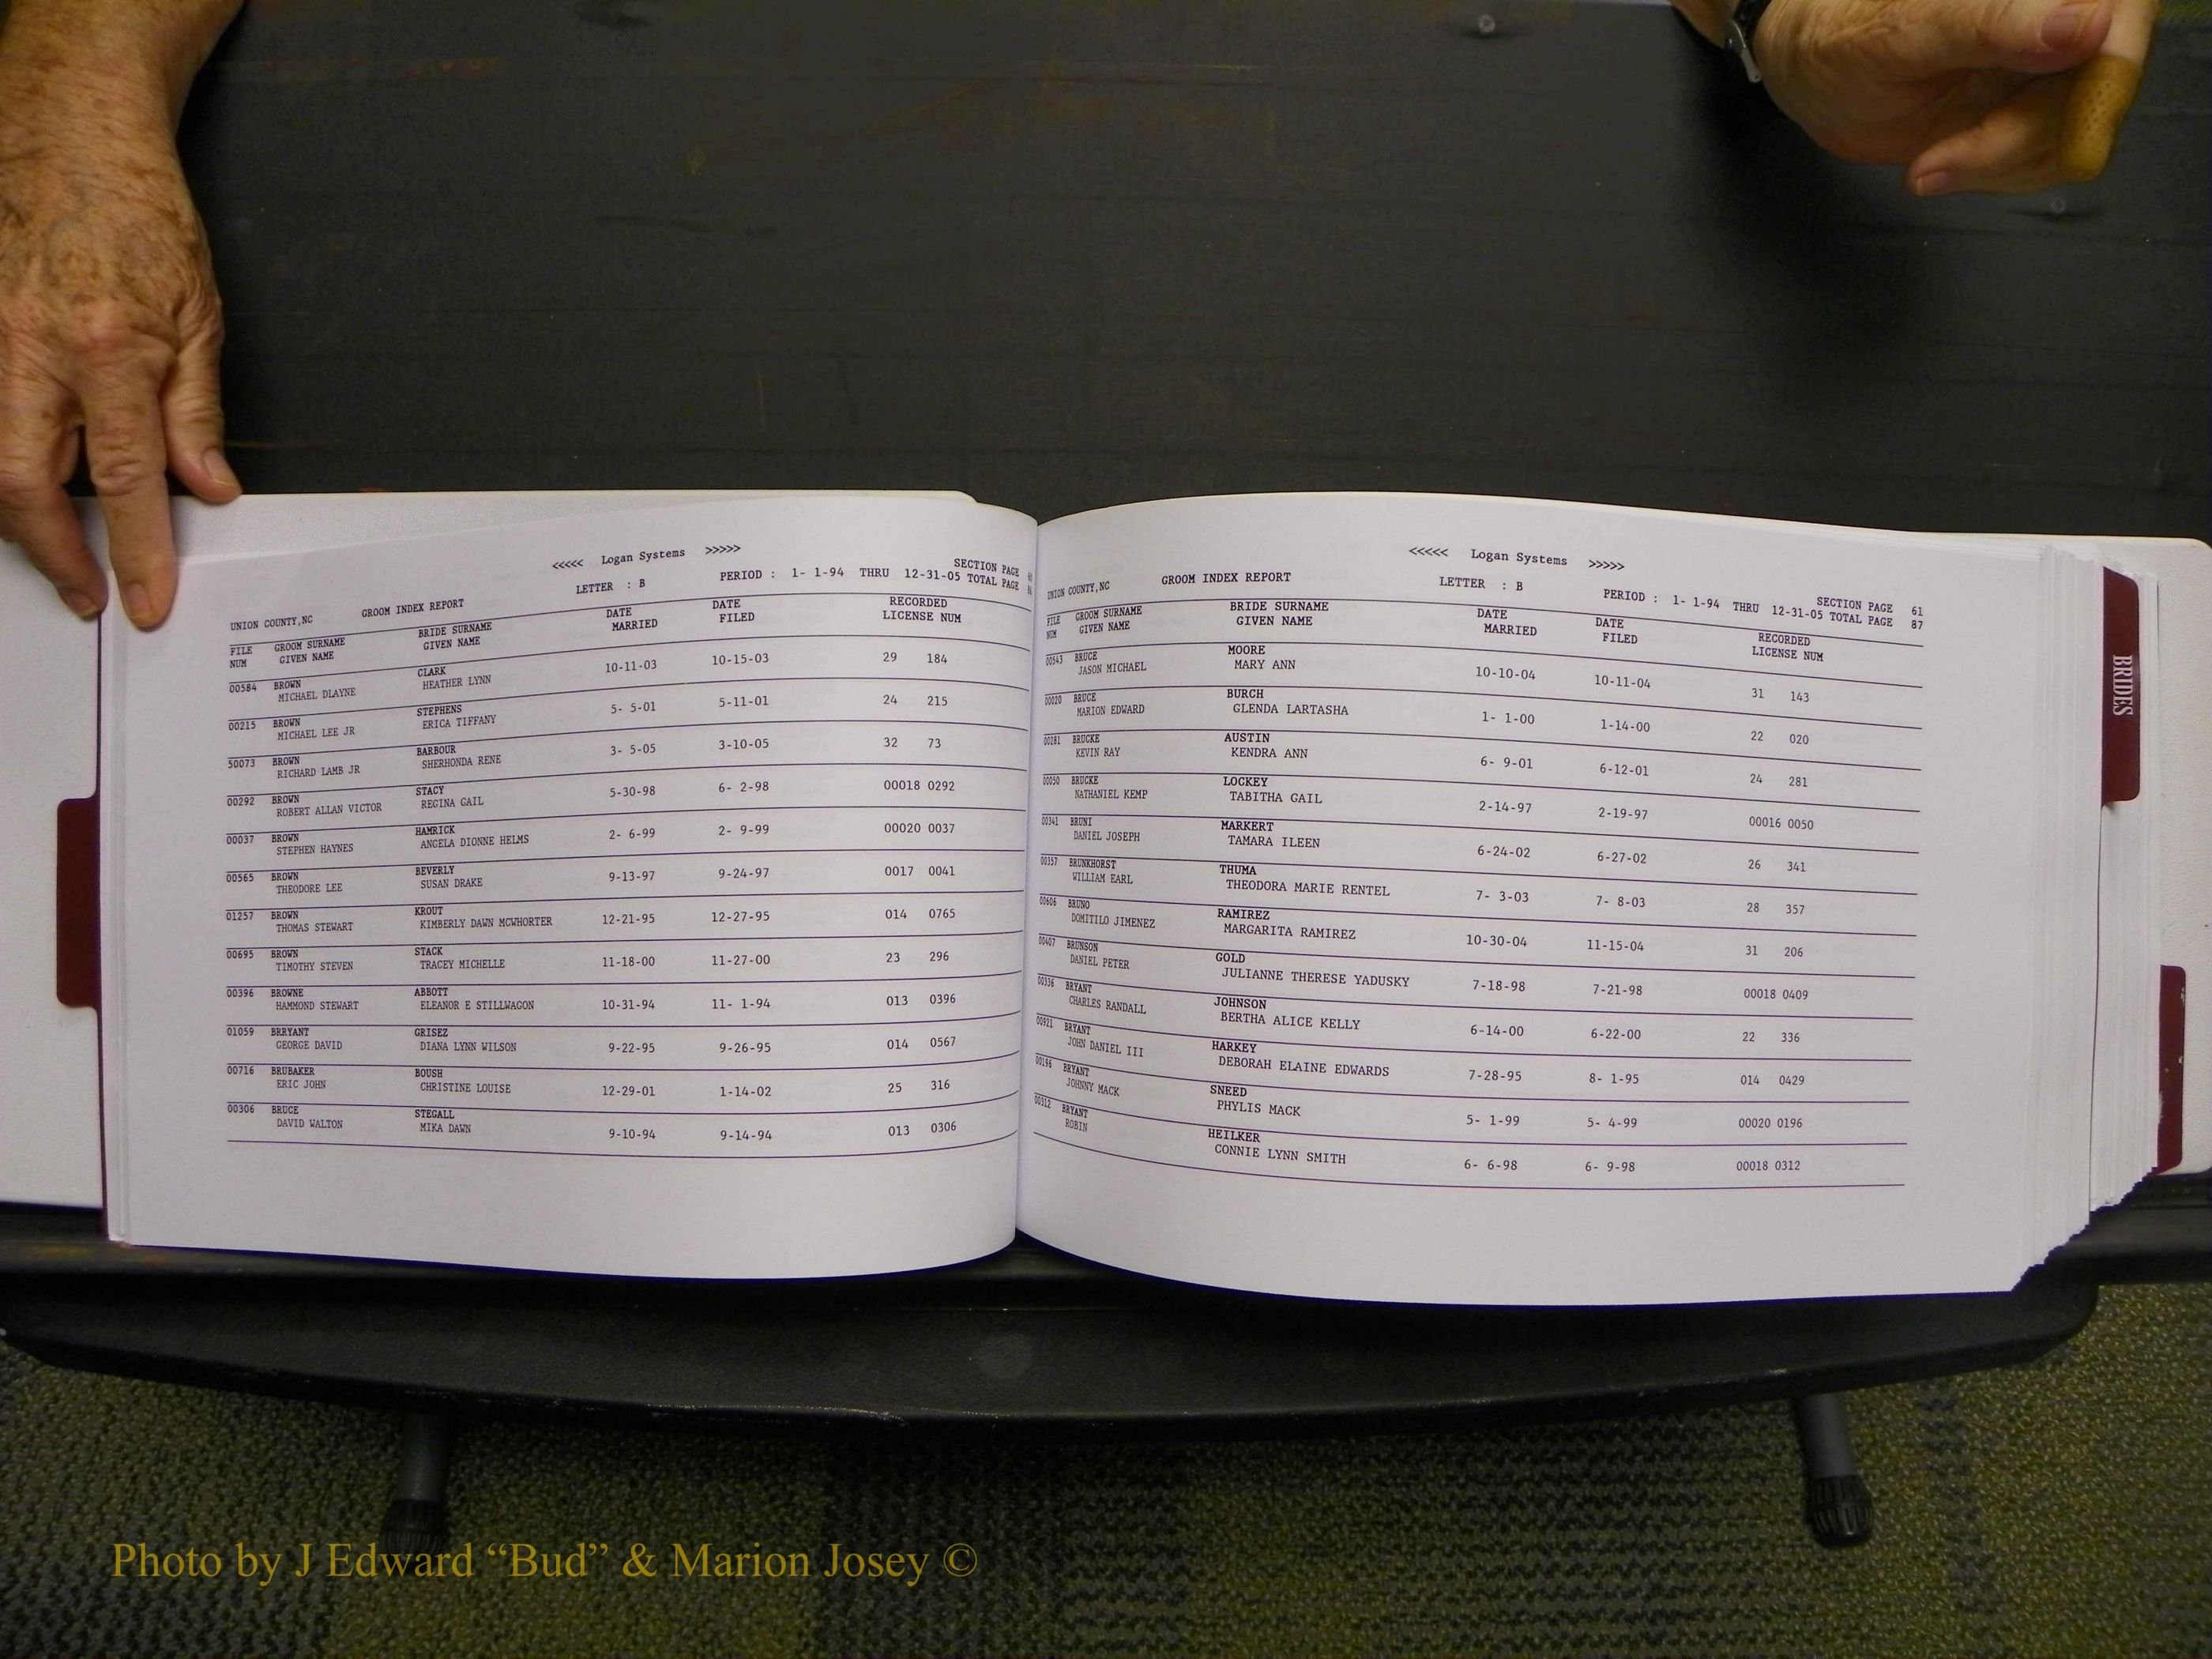 <<<<< Logan Systems >>>>>
UNION COUNTY,NC GROOM INDEX REPORT LETTER : B PERIOD : 1- 1-94 THRU 12-31-05 SECTION PAGE
TOTAL PAGE
FILE NUM GROOM SURNAME GIVEN NAME BRIDE SURNAME GIVEN NAME DATE MARRIED DATE FILED RECORDED LICENSE NUM
00584 BROWN CLARK 10-11-03 10-15-03 29 184
MICHAEL DLAYNE HEATHER LYNN
00215 BROWN STEPHENS 5- 5-01 5-11-01 24 215
MICHAEL LEE JR ERICA TIFFANY
50073 BROWN BARBOUR 3- 5-05 3-10-05 32 73
RICHARD LAMB JR SHERHONDA RENE
00292 BROWN STACY 5-30-98 6- 2-98 00018 0292
ROBERT ALLAN VICTOR REGINA GAIL
00037 BROWN HAMRICK 2- 6-99 2- 9-99 00020 0037
STEPHEN HAYNES ANGELA DIONNE HELMS
00565 BROWN BEVERLY 9-13-97 9-24-97 0017 0041
THEODORE LEE SUSAN DRAKE
01257 BROWN KROUT 12-21-95 12-27-95 014 0765
THOMAS STEWART KIMBERLY DAWN MCWHORTER
00695 BROWN STACK 11-18-00 11-27-00 23 296
TIMOTHY STEVEN TRACEY MICHELLE
00396 BROWNE ABBOTT 10-31-94 11- 1-94 013 0396
HAMMOND STEWART ELEANOR E STILLWAGON
01059 BRRYANT GRISEZ 9-22-95 9-26-95 014 0567
GEORGE DAVID DIANA LYNN WILSON
00716 BRUBAKER BOUSH 12-29-01 1-14-02 25 316
ERIC JOHN CHRISTINE LOUISE
00306 BRUCE STEGALL 9-10-94 9-14-94 013 0306
DAVID WALTON MIKA DAWN
<<<<< Logan Systems >>>>>
UNION COUNTY,NC GROOM INDEX REPORT LETTER : B PERIOD : 1- 1-94 THRU 12-31-05 SECTION PAGE 61
TOTAL PAGE 87
FILE NUM GROOM SURNAME GIVEN NAME BRIDE SURNAME GIVEN NAME DATE MARRIED DATE FILED RECORDED LICENSE NUM
00543 BRUCE MOORE 10-10-04 10-11-04 31 143
JASON MICHAEL MARY ANN
00020 BRUCE BURCH 1- 1-00 1-14-00 22 020
MARION EDWARD GLENDA LARTASHA
00281 BRUCKE AUSTIN 6- 9-01 6-12-01 24 281
KEVIN RAY KENDRA ANN
00050 BRUCKE LOCKEY 2-14-97 2-19-97 00016 0050
NATHANIEL KEMP TABITHA GAIL
00341 BRUNI MARKERT 6-24-02 6-27-02 26 341
DANIEL JOSEPH TAMARA ILEEN
00357 BRUNKHORST THUMA 7- 3-03 7- 8-03 28 357
WILLIAM EARL THEODORA MARIE RENTEL
00606 BRUNO RAMIREZ 10-30-04 11-15-04 31 206
DOMITILO JIMENEZ MARGARITA RAMIREZ
00407 BRUNSON GOLD 7-18-98 7-21-98 00018 0409
DANIEL PETER JULIANNE THERESE YADUSKY
00336 BRYANT JOHNSON 6-14-00 6-22-00 22 336
CHARLES RANDALL BERTHA ALICE KELLY
00921 BRYANT HARKEY 7-28-95 8- 1-95 014 0429
JOHN DANIEL III DEBORAH ELAINE EDWARDS
00196 BRYANT SNEED 5- 1-99 5- 4-99 00020 0196
JOHNNY MACK PHYLIS MACK
00312 BRYANT HEILKER 6- 6-98 6- 9-98 00018 0312
ROBIN CONNIE LYNN SMITH
BRIDES
Photo by J Edward “Bud” & Marion Josey ©